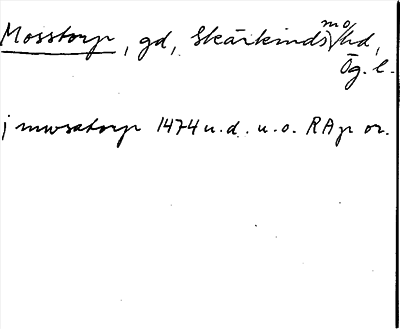 Mosstorp, gd, Skärkinds sn o hd,
Ög. l.
j mwsatorp 1474 u. d. u. o. RAp or.